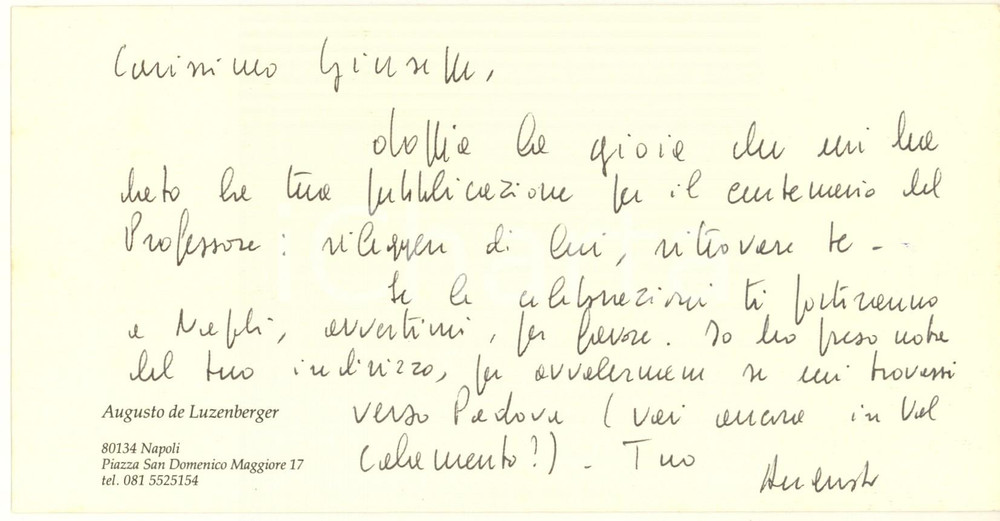 Carissimo Giuseppe,
doppia la gioia che mi ha
dato la tua pubblicazione per il centenario del
Professore: rileggere di lui, ritrovare te -
Se le celebrazioni ti porteranno
a Napoli, avvertimi, per favore. Io ho preso nota
del tuo indirizzo, per avvalermene se mi trovassi
verso Padova (vai ancora in Val
Calamento?). Tuo
Augusto
Augusto de Luzenberger
80134 Napoli
Piazza San Domenico Maggiore 17
tel. 081 5525154